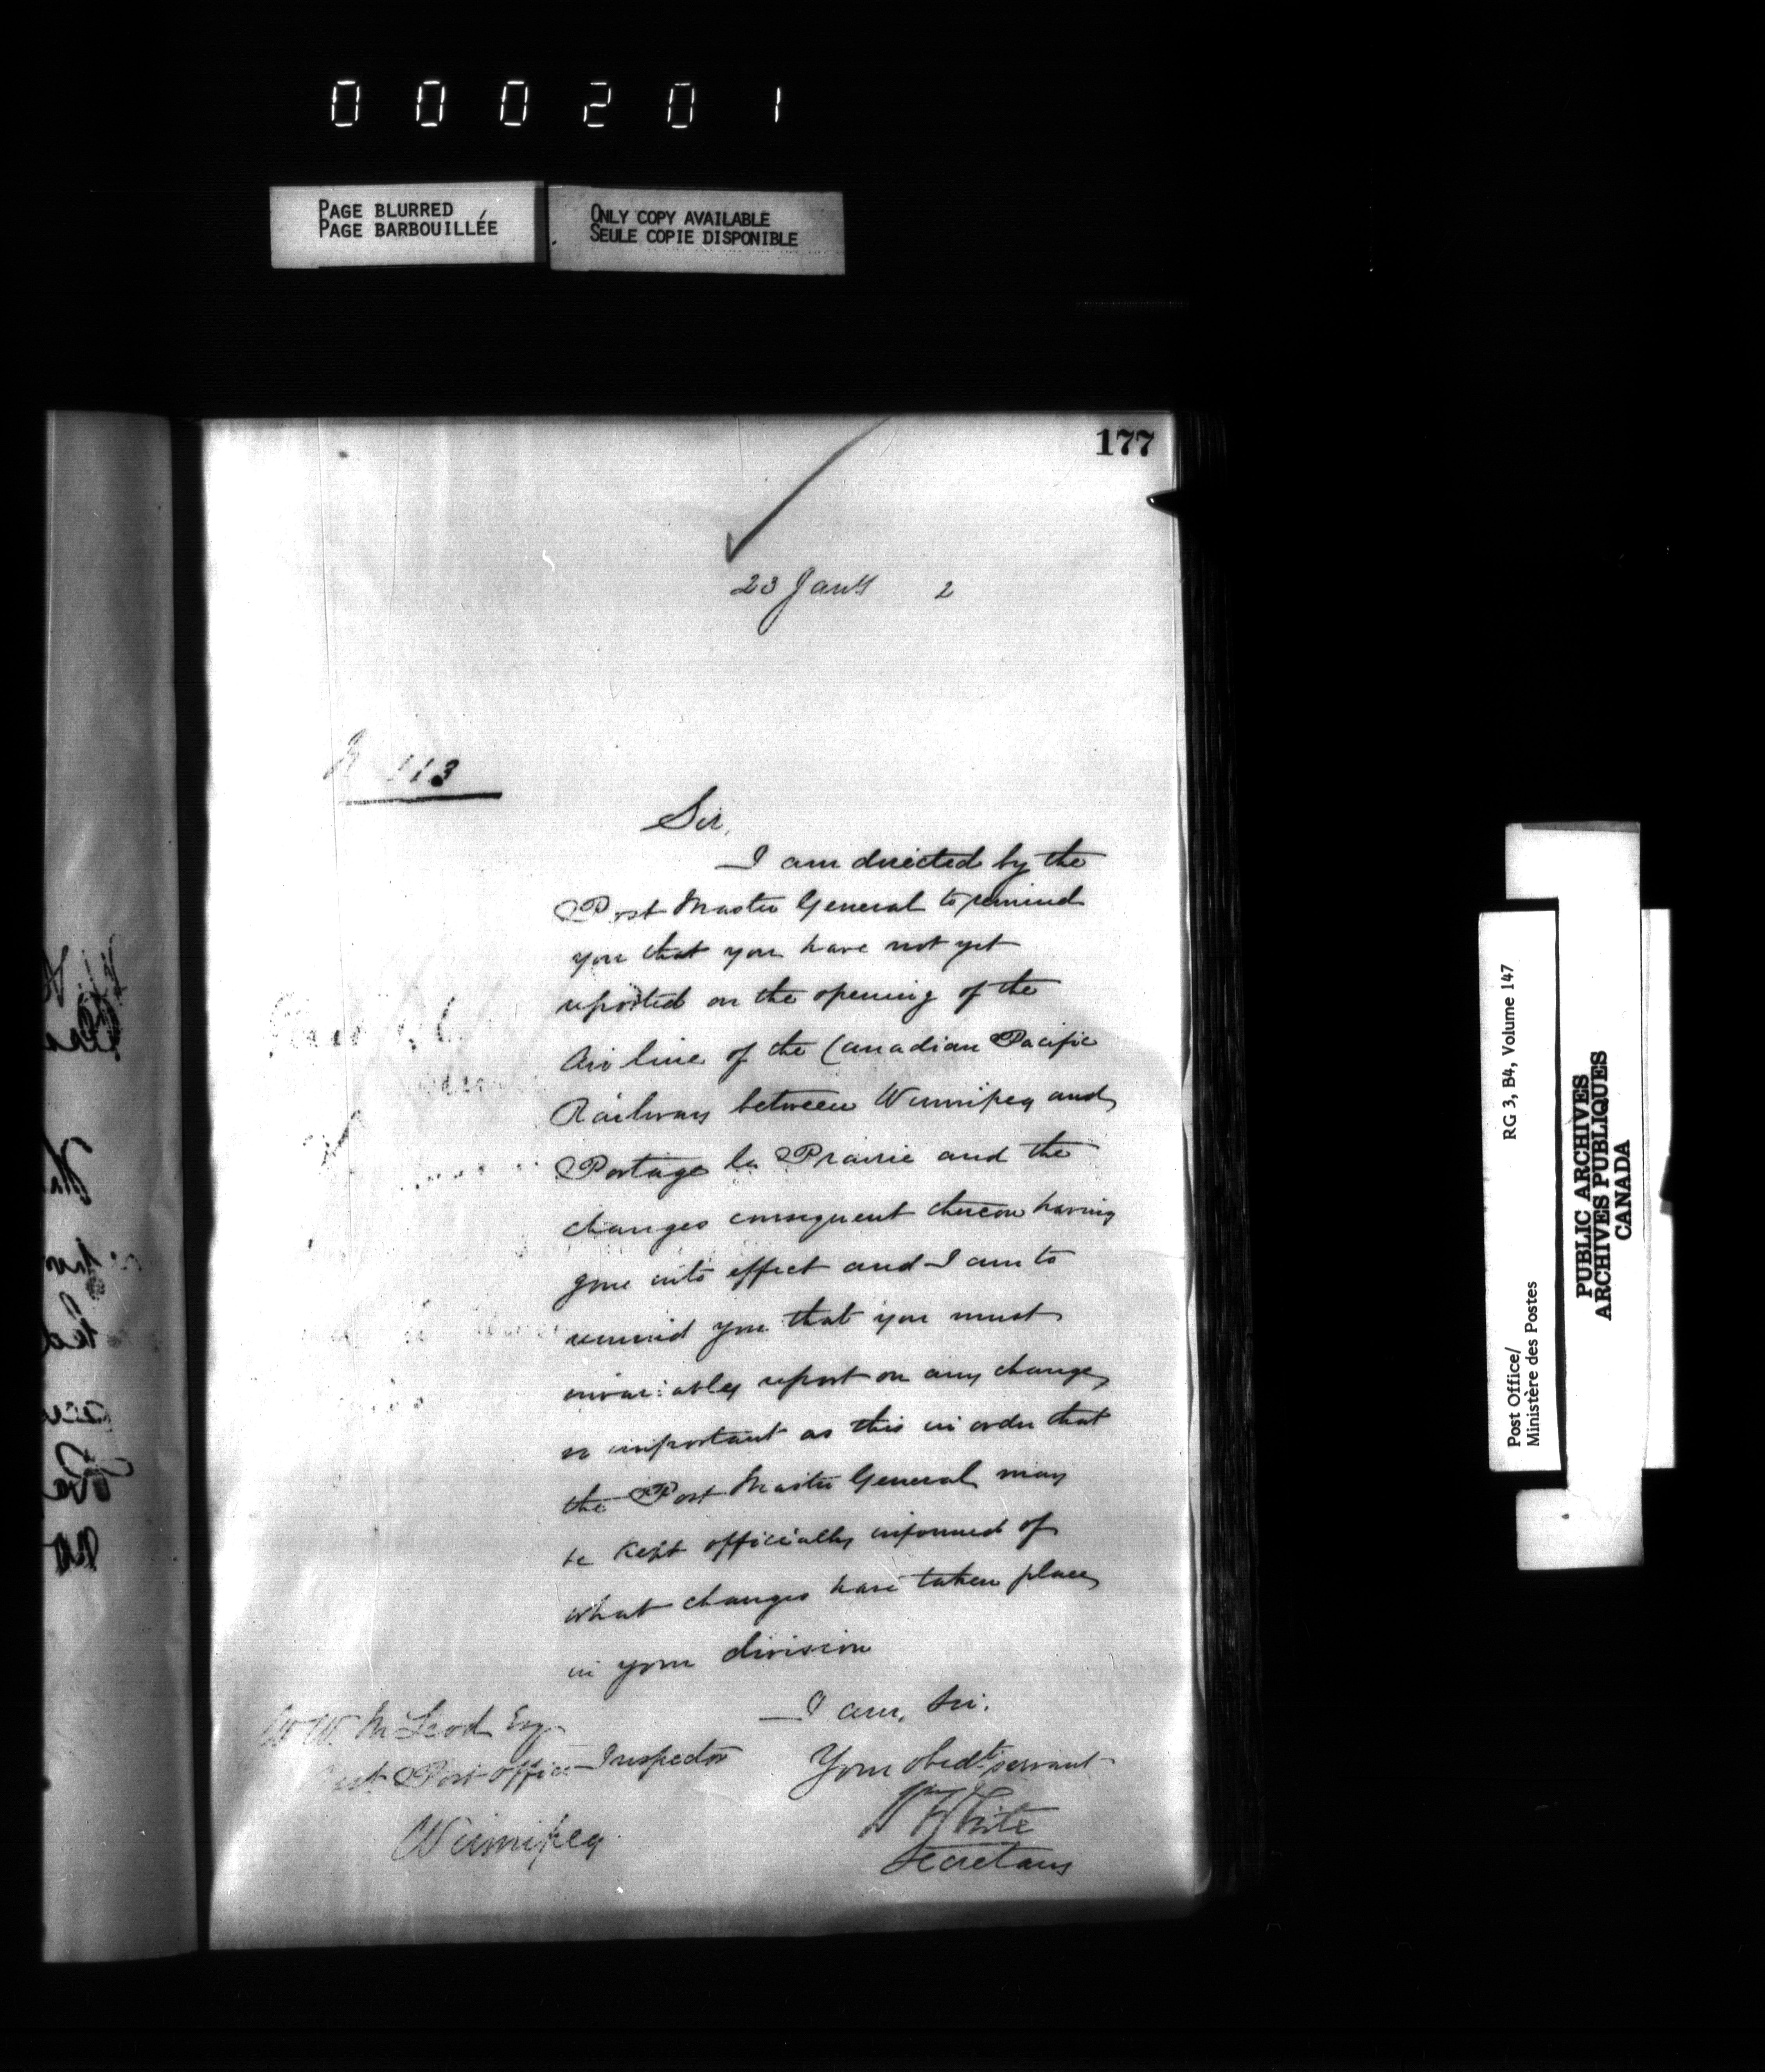 000201
PAGE BLURRED
PAGE BARBOUILLÉE
ONLY COPY AVAILABLE
SEULE COPIE DISPONIBLE
177
23 Jany 2
113
Sir,
I am directed by the
Post Master General to remind
you that you have not yet
reported on the opening of the
Air line of the Canadian Pacific
Railway between Winnipeg and
Portage la Prairie and the
changes consequent thereon having
gone into effect and I am to
remind you that you must
invariably report on any change
so important as this in order that
the Post Master General may
be kept officially informed of
what changes have taken place
in your division
I am, Sir.
Your obedt servant
Wm White
Secretary
W W. McLeod Esq
Post Office Inspector
Winnipeg
Post Office/
Ministère des Postes
RG 3, B4, Volume 147
PUBLIC ARCHIVES
ARCHIVES PUBLIQUES
CANADA